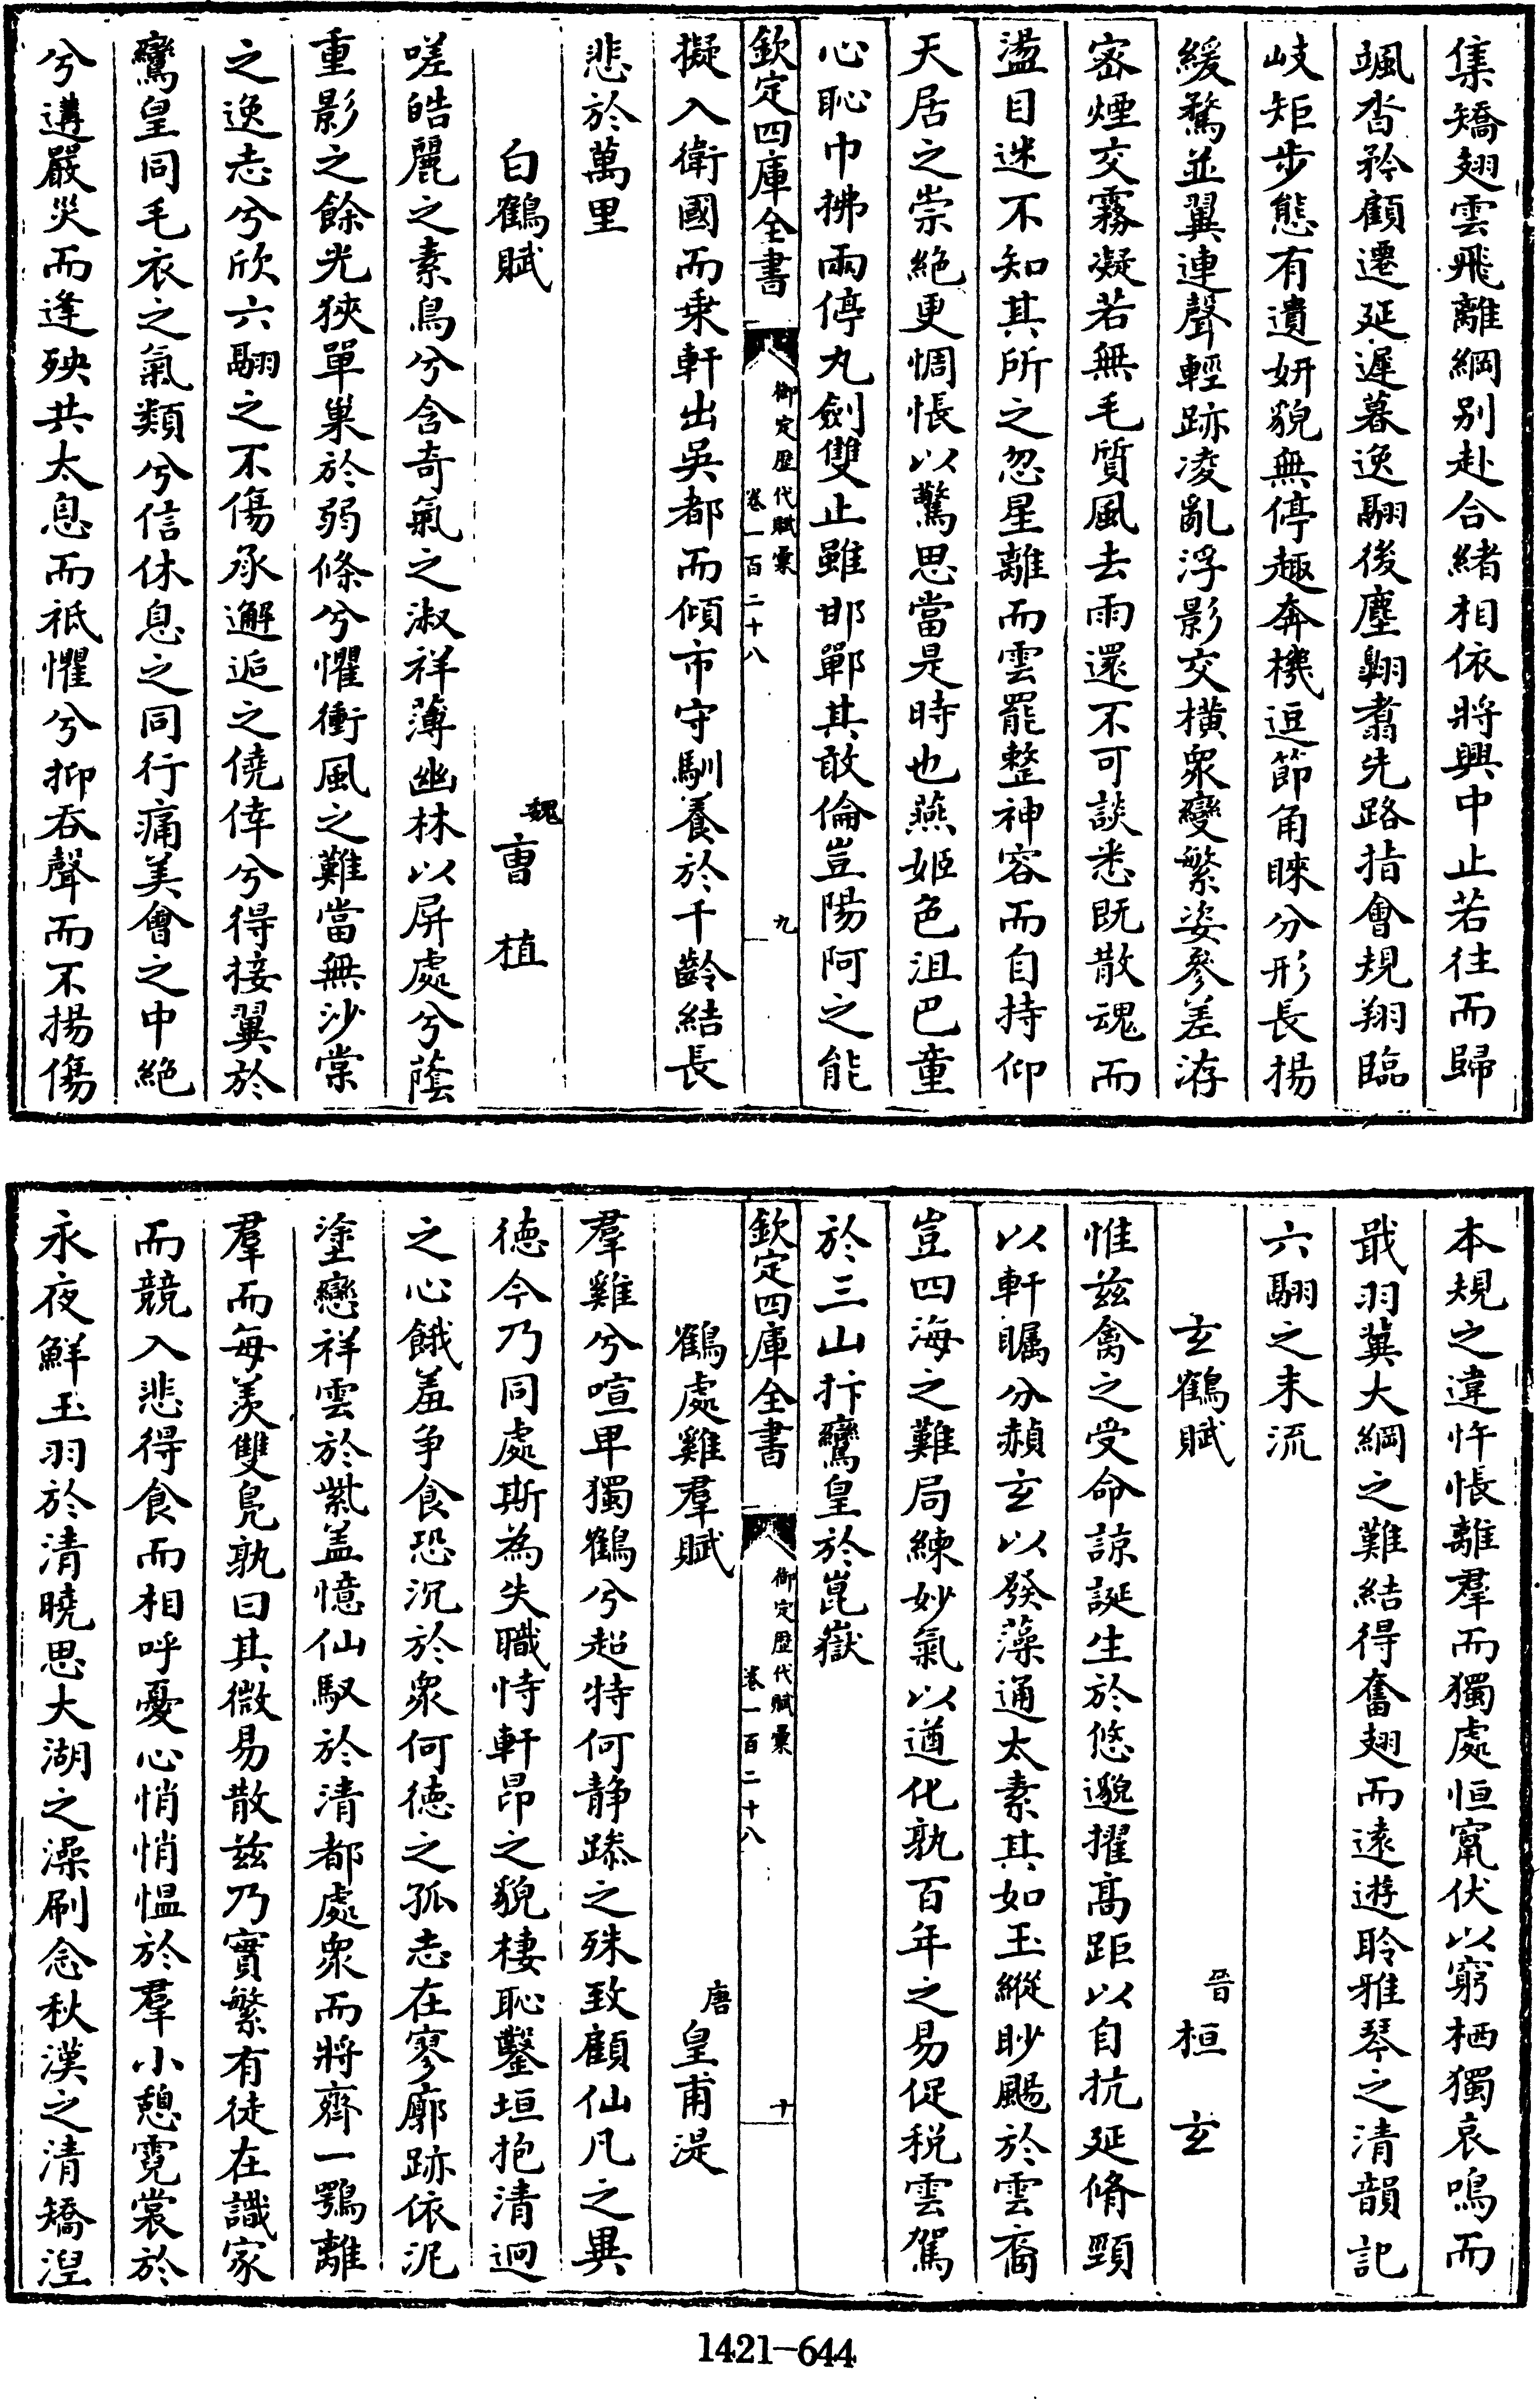 集矯翅雲飛離綱别赴合緒相依將興中止若往而歸
颯沓矜顧遷延遲暮逸翮後塵翺翥先路指會規翔臨
岐矩步態有遺妍貌無停趣奔機逗節角睞分形長揚
緩騖並翼連聲輕跡凌亂浮影交横衆變繁姿參差洊
宻煙交霧凝若無毛質風去雨還不可談悉既散魂而
盪目迷不知其所之忽星離而雲罷整神容而自持仰
天居之崇絶更惆悵以驚思當是時也燕姬色沮巴童
心恥巾拂兩停丸劍雙止雖邯鄲其敢倫豈陽阿之能
欽定四庫全書
御定歴代賦彙
卷一百二十八
九
擬入衛國而乗軒出吳都而傾市守馴養於千齡結長
悲於萬里
白鶴賦
魏曹植
嗟皓麗之素鳥兮含奇氣之淑祥薄幽林以屏處兮蔭
重影之餘光狹單巢於弱條兮懼衝風之難當無沙棠
之逸志兮欣六翮之不傷承邂逅之僥倖兮得接翼於
鸞皇同毛衣之氣類兮信休息之同行痛美會之中絶
兮遘嚴災而逢殃共太息而祗懼兮抑吞聲而不揚傷
本規之違忤悵離羣而獨處恒竄伏以窮栖獨哀鳴而
戢羽冀大綱之難結得奮翅而逺遊聆雅琴之清韻記
六翮之末流
玄鶴賦
晉桓玄
惟兹禽之受命諒誕生於悠邈擢髙距以自抗延脩頸
以軒矚分頳玄以發藻通太素其如玉縱眇颺於雲裔
豈四海之難局練妙氣以遒化孰百年之易促税雲駕
於三山抃鸞皇於崑嶽
欽定四庫全書
御定歴代賦彙
卷一百二十八
十
鶴處雞羣賦
唐皇甫湜
羣雞兮喧卑獨鶴兮超特何静躁之殊致顧仙凡之異
徳今乃同處斯為失職恃軒昂之貌棲恥鑿垣抱清迥
之心餓羞争食恐沉於衆何徳之孤志在寥廓跡依泥
塗戀祥雲於紫盖憶仙馭於清都處衆而將齊一鶚離
羣而每羡雙鳬孰曰其微易散兹乃實繁有徒在識家
而競入悲得食而相呼憂心悄悄愠於羣小憩霓裳於
永夜鮮玉羽於清曉思大湖之澡刷念秋漢之清矯湼
1421-644